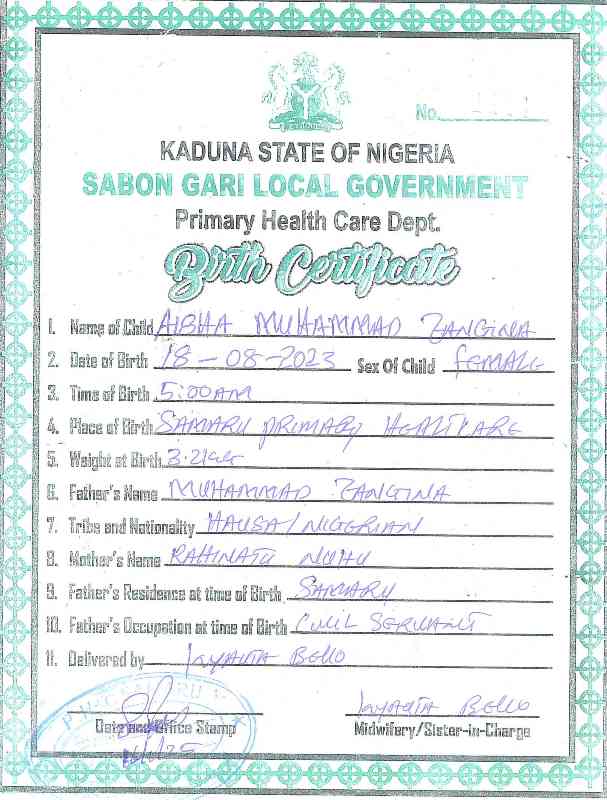 No.
KADUNA STATE OF NIGERIA
SABON GARI LOCAL GOVERNMENT
Primary Health Care Dept.
Birth Certificate
1. Name of Child AIBHA MUHAMMAD ZANGINA
2. Date of Birth 18-08-2023 Sex Of Child FEMALE
3. Time of Birth 5:00AM
4. Place of Birth SAMARU PRIMARY HEALTCARE
5. Weight at Birth 3.2KG
6. Father's Name MUHAMMAD ZANGINA
7. Tribe and Nationality HAUSA/NIGERIAN
8. Mother's Name RAHINATU NUHU
9. Father's Residence at time of Birth SAMARU
10. Father's Occupation at time of Birth CIVIL SERVANT
11. Delivered by BELLO
BELLO
Date and Office Stamp Midwifery/Sister-in-Charge